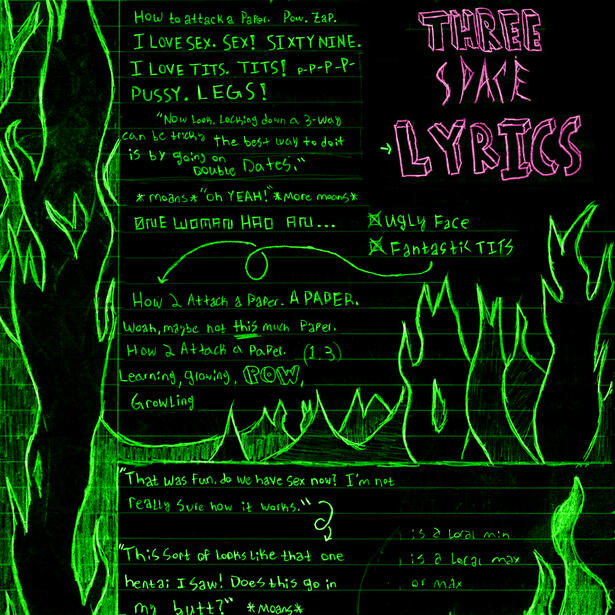 How to attack a Paper. Pow. Zap.
I LOVE SEX. SEX! SIXTY NINE.
I LOVE TITS. TITS! P-P-P-P-
PUSSY. LEGS!
"Now Look, Locking down a 3-way
can be tricky the best way to do it
is by going on
DOUBLE Dates."
*moans* "Oh YEAH!" *More moans*
ONE WOMAN HAD AN...
UGLY FACE
FANTASTIK TITS
How 2 Attack a Paper. A PAPER.
Woah, maybe not this much Paper.
How 2 Attack a Paper. (1.3)
Learning, growing, POW,
Growling
THREE
SPACE
LYRICS
"That was fun. do we have sex now? I'm not
really sure how it works."
"This sort of looks like that one
hentai I saw! Does this go in
my butt?" *Moans*
is a local min
is a local max
or max